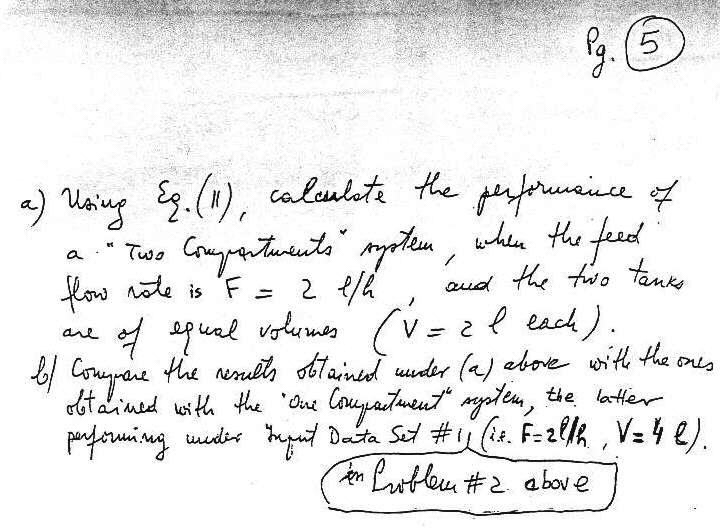 Pg. 5
a) Using Eq. (11), calculate the performance of
a "Two Compartments" system, when the feed
flow rate is F = 2 l/h, and the two tanks
are of equal volumes (V = 2 l each).
b/ Compare the results obtained under (a) above with the ones
obtained with the "One Compartment" system, the latter
performing under Input Data Set #1, (i.e. F=2l/h, V=4 l).
in Problem #2 above